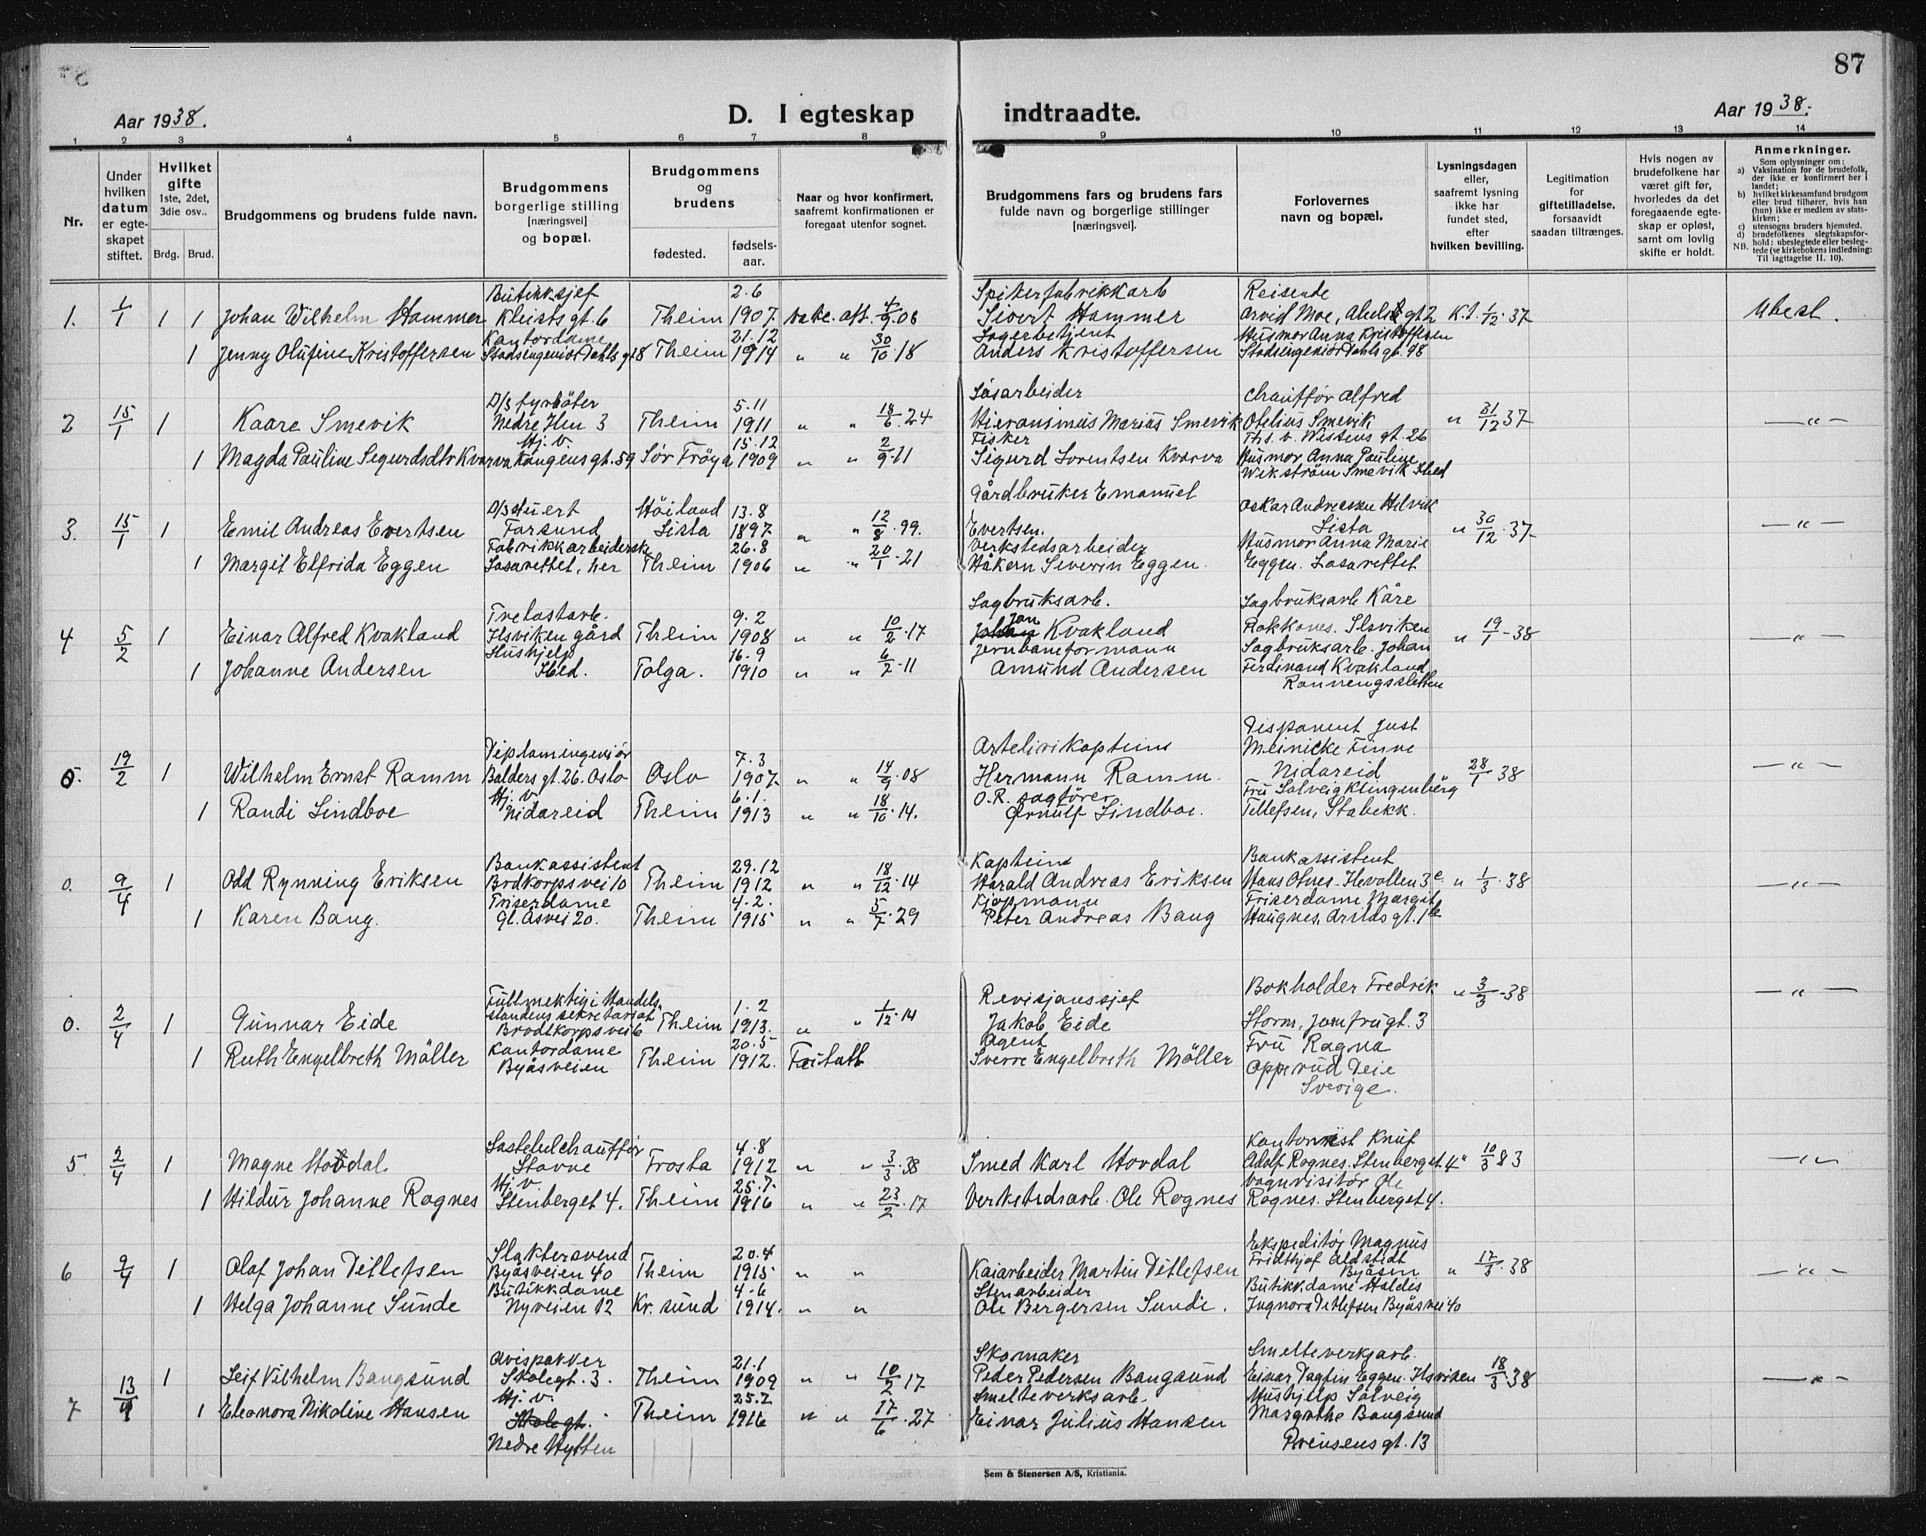 87
Aar 1938.
D. I egteskap indtraadte.
Aar 1938.
1 2 3 4 5 6 7 8 9 10 11 12 13 14
Nr.
Under hvilken datum er egteskapet stiftet.
Hvilket gifte 1ste, 2det, 3die osv..
Brdg. Brud.
Brudgommens og brudens fulde navn.
Brudgommens borgerlige stilling [næringsvei] og bopæl.
Brudgommens og brudens
fødested. fødselsaar.
Naar og hvor konfirmert, saafremt konfirmationen er foregaat utenfor sognet.
Brudgommens fars og brudens fars fulde navn og borgerlige stillinger [næringsvei].
Forlovernes navn og bopæl.
Lysningsdagen eller, saafremt lysning ikke har fundet sted, efter hvilken bevilling.
Legitimation for giftetilladelse, forsaavidt saadan tiltrænges.
Hvis nogen av brudefolkene har været gift før, hvorledes da det foregaaende egteskap er opløst, samt om lovlig skifte er holdt.
Anmerkninger.
Som oplysninger om:
a) Vaksination for de brudefolk, der ikke er konfirmert her i landet;
b) hvilket kirkesamfund brudgom eller brud tilhører, hvis han (hun) ikke er medlem av statskirken;
c) utensogns bruders hjemsted.
d) brudefolkenes slegtskapsforhold: ubeslegtede eller beslegtede (se kirkebokens indledning: Til iagttagelse II. 10).
NB.
Butikksjef 2.6 Spikerfabrikkarb Reisende
1. 1/1 1 1 Johan Wilhelm Hammer Kleists gt. 6 Theim 1907 vakc. att. 4/9 08 Sivert Hammer Arvid Moe, Abels gt 2 K.l. 1/12 37 Ubesl.
Kontordame 21.12 Lagerbetjent Husmor Anna Kristoffersen
1 Jenny Olufine Kristoffersen Stadsingeniør Dahls gt 8 Theim 1914 " " 30/10 18 Anders Kristoffersen Stadsingeniør Dahls gt. 98
D/s fyrbøter 5.11 Løsarbeider Chauffør Alfred
2 15/1 1 Kaare Smevik Nedre Ilen 3 Theim 1911 " " 18/6 24 Hieronimus Marius Smevik Otelius Smevik " 31/12 37 — " —
Hj. v. 15.12 Fisker Ths. v. Westens gt. 26
1 Magda Pauline Sigurdsdtr Kvarva Kongens gt. 59 Sør Frøya 1909 " " 2/9 11 Sigurd Lorentsen Kvarva Husmor Anna Pauline
Wikstrøm Smevik Ibed
D/s stuert Høiland 13.8 Gårdbruker Emanuel Oskar Andreassen Hilvik
3. 15/1 1 Emil Andreas Evertsen Farsund Lista 1897 " " 12/8 99. Evertsen. Lista " 30/12 37 — " —
Fabrikkarbeiderske 26.8 Verkstedsarbeider Husmor Anna Marie
1 Margit Elfrida Eggen Lasarettet, her Theim 1906 " " 20/1 21 Håkon Severin Eggen. Eggen. Lasarettet
Trelastarb. 9.2 Sagbruksarb. Sagbruksarb Kåre
4 5/2 1 Einar Alfred Kvakland Ilsviken gård Theim 1908 " " 10/2 17 Jon Kvakland Rokkones. Ilsviken " 19/1 38 — " —
Hushjelp 16.9 Jernbaneformann Sagbruksarb. Johan
1 Johanne Andersen Ibed. Tolga. 1910 " " 6/7 11 Amund Andersen Ferdinand Kvakland
Ronnengssletten
Disponent Just
Diplomingeniør 7.3 Artelirikaptein Meinicke Finne
5. 19/2 1 Wilhelm Ernst Ramm Balders gt. 26. Oslo Oslo 1907 " " 14/9 08 Hermann Ramm. Nidareid 28/1 38 — " —
Hj. v. 6.1. O.R. sagfører Fru Solveig Klingenberg
1 Randi Lindboe Nidareid Theim 1913 " " 18/10 14. Ørnulf Lindboe. Tellefsen, Stabekk.
Bankassistent 29.12 Kaptein Bankassistent
0. 9/4 1 Odd Rynning Eriksen Brdkorps vei 10 Theim 1912 " " 18/12 14 Harald Andreas Eriksen Hans Otnes. Ilevollen 3c " 1/3 38 — " —
Friserdame 4.2. Kjøpmann Friserdame Margit
1 Karen Bang. Gl. Åsvei 20. Theim 1915 " " 5/7 29 Peter Andreas Bang Haugnes, Arilds gt. 1b
Fullmektig i Handels 1.2 Revisjonssjef Bokholder Fredrik " 3/3 38
standens sekretariat
0. 2/4 1 Gunnar Eide Brodtkorps vei 6 Theim 1913. " " 1/12 14 Jakob Eide Storm, Jomfrugt. 3 — " —
Kontordame 20.5 Agent Fru Ragna
1 Ruth Engelbreth Møller Byåsveien Theim 1912. Fritatt Sverre Engelbreth Møller Opperud Deie
Sverige.
Lastebilchauffør 4.8 Kontorist Knut
5. 2/4 1 Magne Hovdal Stavne Frosta 1912 " " 3/3 38 Smed Karl Hovdal Adolf Rognes. Stenberget 4 " 10/3 83 — " —
Hj. v. 25.7. Vognvisitør Ole
1 Hildur Johanne Rognes Stenberget 4. Theim 1916 " " 23/2 17 Verkstedsarb. Ole Rognes Rognes. Stenberget 4.
Slaktersvend 20.4 Ekspeditør Magnus
6 9/4 1 Olaf Johan Ditlefsen Byåsveien 40 Theim 1915 " " Kaiarbeider Martin Ditlefsen Fridthjof Aldstedt Byåsen " 17/3 38 — " —
Butikkdame 4.6 Stenarbeider Butikkdame Haldis
1 Helga Johanne Sunde Nyveien 12 Kr. sund 1914. " " Ole Bergersen Sunde. Ingnora Detlefsen Byåsvei 40
Avispakker 21.1 Skomaker Smelteverksarb.
7 13/4 1 Leif Vilhelm Bangsund Skolegt. 3. Theim 1909 " " 10/2 17 Peder Pedersen Bangsund Einar Dagfin Eggen. Ilsviken 18/3 38 — " —
Hj. v. 25.2 Smelteverksarb. Hushjelp Solveig
1 Eleonora Nikoline Hansen Skolegt. Theim 1916 " " 17/6 27 Einar Julius Hansen Margrethe Bangsund
Nedre Hytten Prinsens gt. 13
Sem & Stenersen A/S, Kristiania.